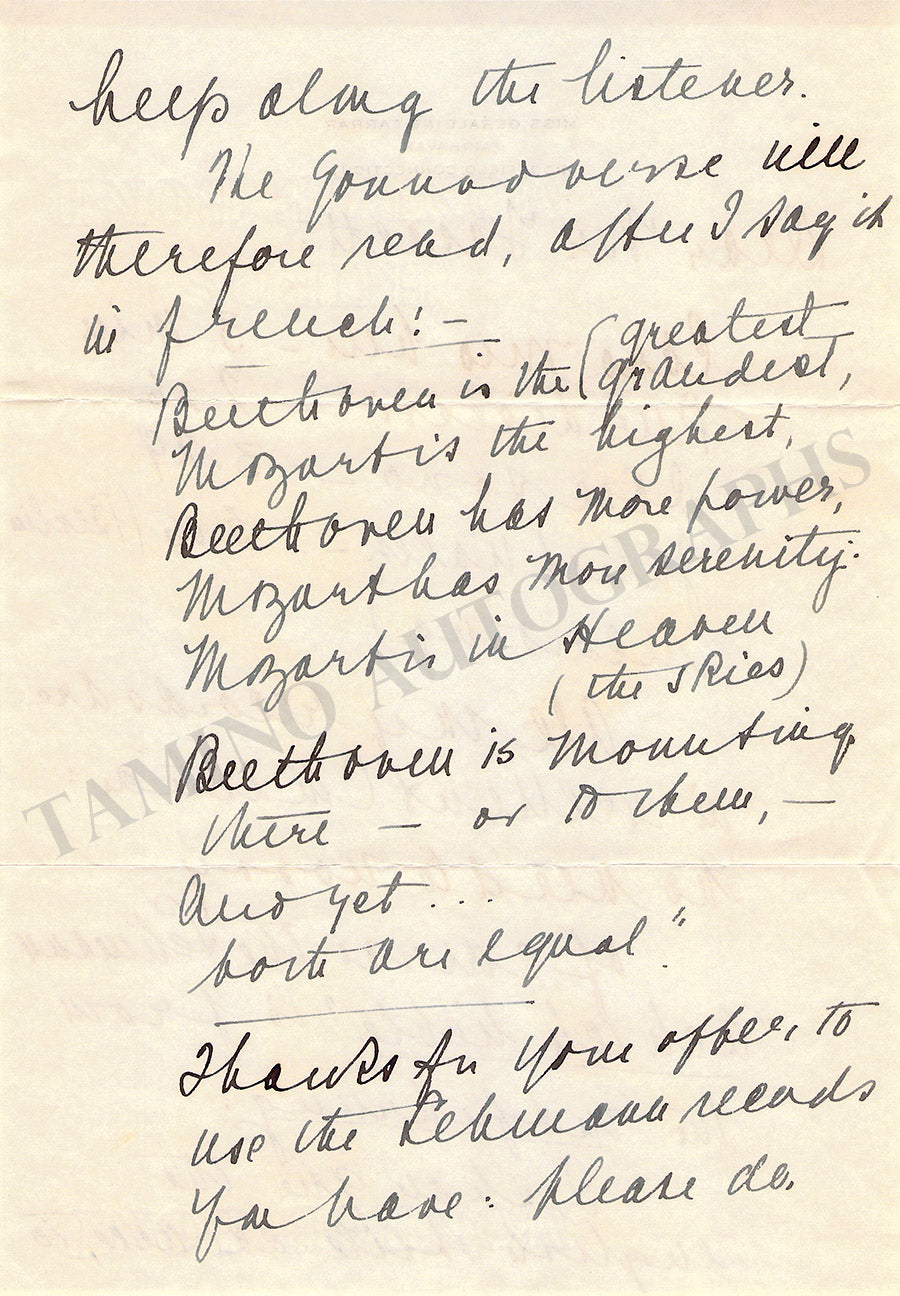 help along the listener.
The Gounod verse will
therefore read, after I say it
in french: —
greatest
Beethoven is the (grandest,
Mozart is the highest,
Beethoven has more power,
Mozart has more serenity.
Mozart is in Heaven
(the skies)
Beethoven is mounting
there — or to them, —
And yet ...
both are equal"
Thanks for your offer, to
use the Lehmann records
you have: please do.
TAMINO AUTOGRAPHS